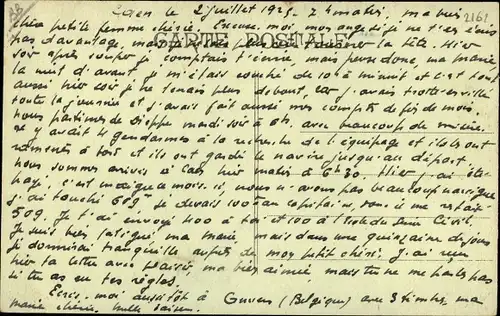 Caen le 2 juillet 1925. 7 h matin, ma bien
chère petite femme chérie, Excuse moi mon ange si je ne t'ai écris
pas davantage, mais la tête. Hier
CARTE POSTALE
2162
soir après souper je comptais t'écrire, mais penses donc, ma Marie
la nuit d'avant je m'étais couché de 10 h à minuit et c'est tout
aussi hier soir je ne tenais plus debout, car j'avais trotté en ville
toute la journée et j'avais fait aussi mes comptes de fin de mois
nous partîmes de Dieppe mardi soir à 6h. avec beaucoup de misère.
il y avait 4 gendarmes à la recherche de l'équipage et ils les ont
ramenés à bord et ils ont gardé le navire jusqu'au départ.
nous sommes arrivés à Caen hier matin à 6h30. Hier, j'ai été
payé, c'est maigre ce mois-ci, nous n'avons pas beaucoup navigué
j'ai touché 609 je devais 100 au capitaine, donc il me restait
509. Je t'ai envoyé 400 à toi et 100 à
Je suis bien fatigué ma Marie mais dans une quinzaine de jours
je dormirai tranquille auprès de mon petit chéri. J'ai reçu
hier ta lettre avec plaisir, ma bien aimée mais tu ne me parles pas
si tu as eu tes règles.
Ecris-moi aussitôt à Anvers (Belgique) avec 3 timbres, ma
Marie chérie, mille baisers.